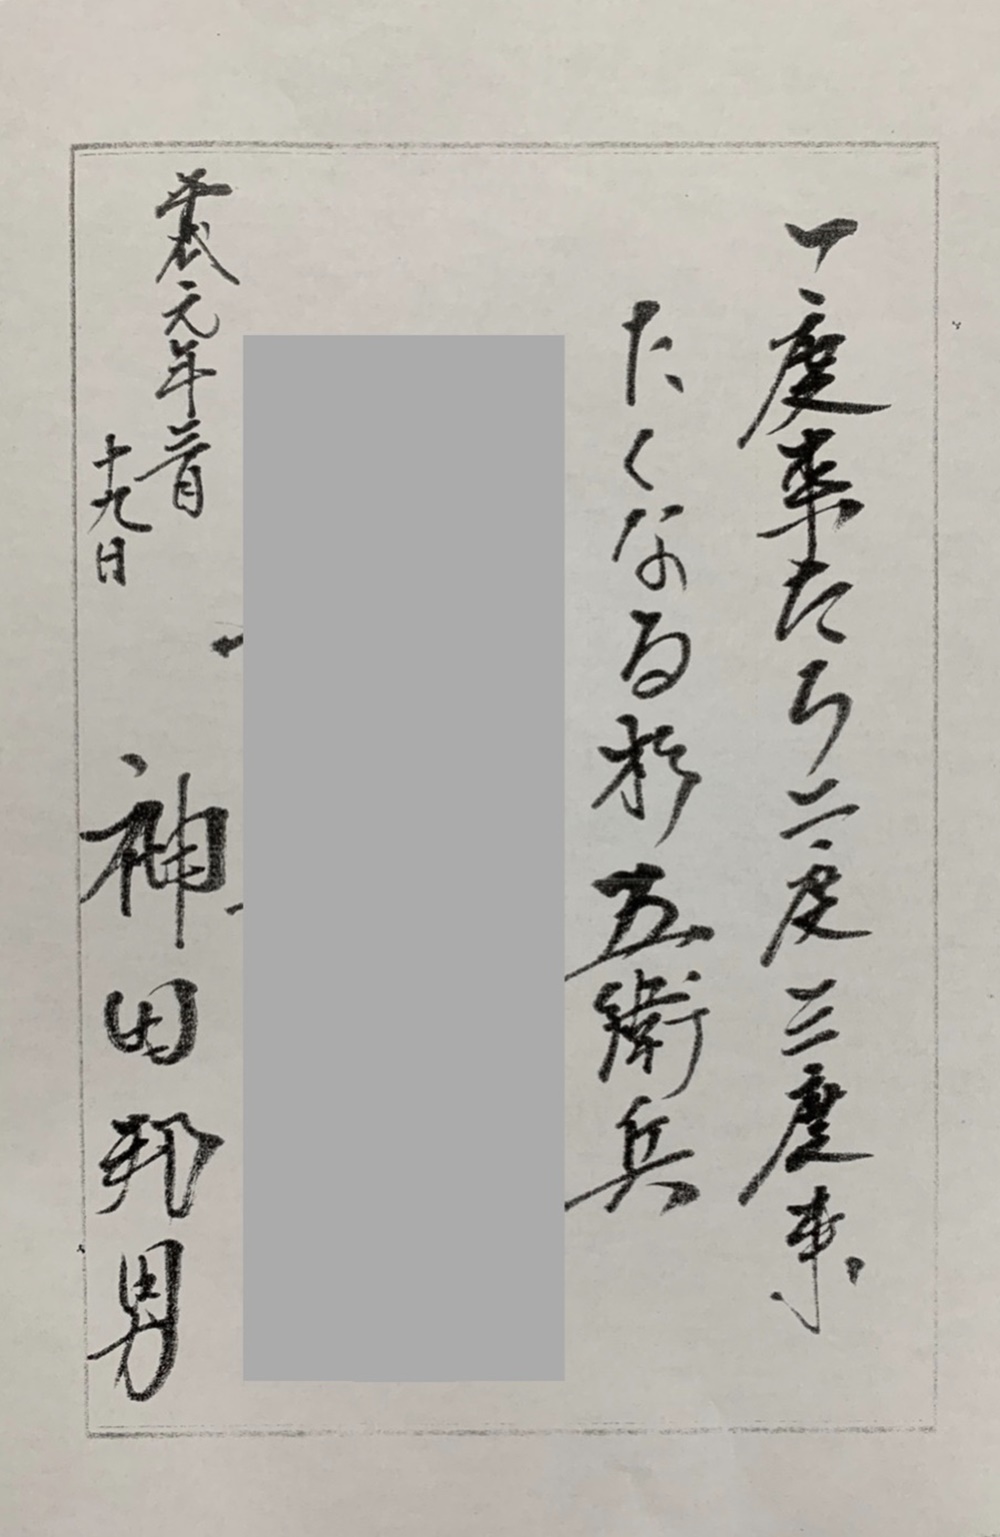 一度来たら二度三度来
たくなる杉五兵衛
平成元年二月
十九日
神田邦男